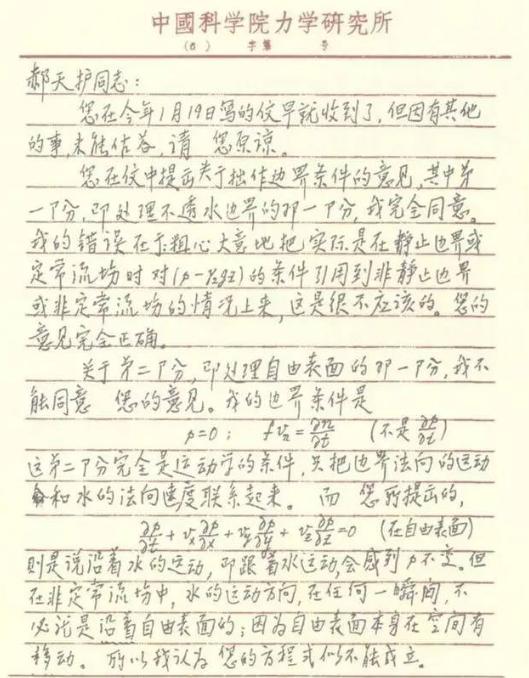 中國科学院力学研究所
(  )  字第  号
郝天护同志：
您在今年1月19日写的信早就收到了，但因有其他
的事，未能作答，请 您原谅。
您在信中提出关于拙作边界条件的意见，其中第
一部分，即处理不透水边界的那一部分，我完全同意。
我的错误在于粗心大意地把实际是在静止边界或
定常流场时对(p-γ₀gz)的条件引用到非静止边界
或非定常流场的情况上来，这是很不应该的。您的
意见完全正确。
关于第二部分，即处理自由表面的那一部分，我不
能同意 您的意见。我的边界条件是
p=0； fvₙ=∂n/∂t （不是∂p/∂t）
这第二部分完全是运动学的条件，只把边界法向的运动
和水的法向速度联系起来。而 您所提出的，
∂p/∂t+vₓ∂p/∂x+v_y∂p/∂y+v_z∂p/∂z=0 （在自由表面）
则是说沿着水的运动，即跟着水运动，会感到p不变。但
在非定常流场中，水的运动方向，在任何一瞬间，不
必说是沿着自由表面的；因为自由表面本身在空间有
移动。所以我认为 您的方程式似不能成立。